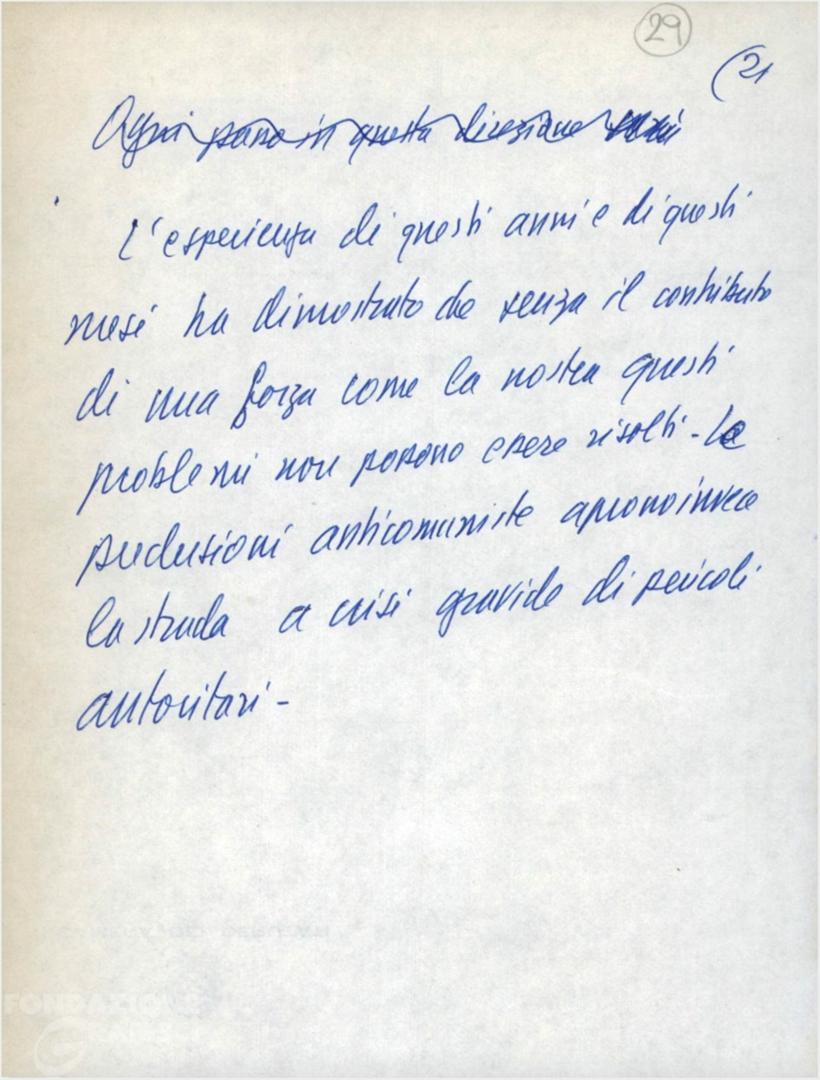 29
(21
Ogni passo in questa direzione
L'esperienza di questi anni e di questi
mesi ha dimostrato che senza il contributo
di una forza come la nostra questi
problemi non possono essere risolti - Le
preclusioni anticomuniste aprono invece
la strada a crisi gravide di pericoli
autoritari -
FONDAZIONE